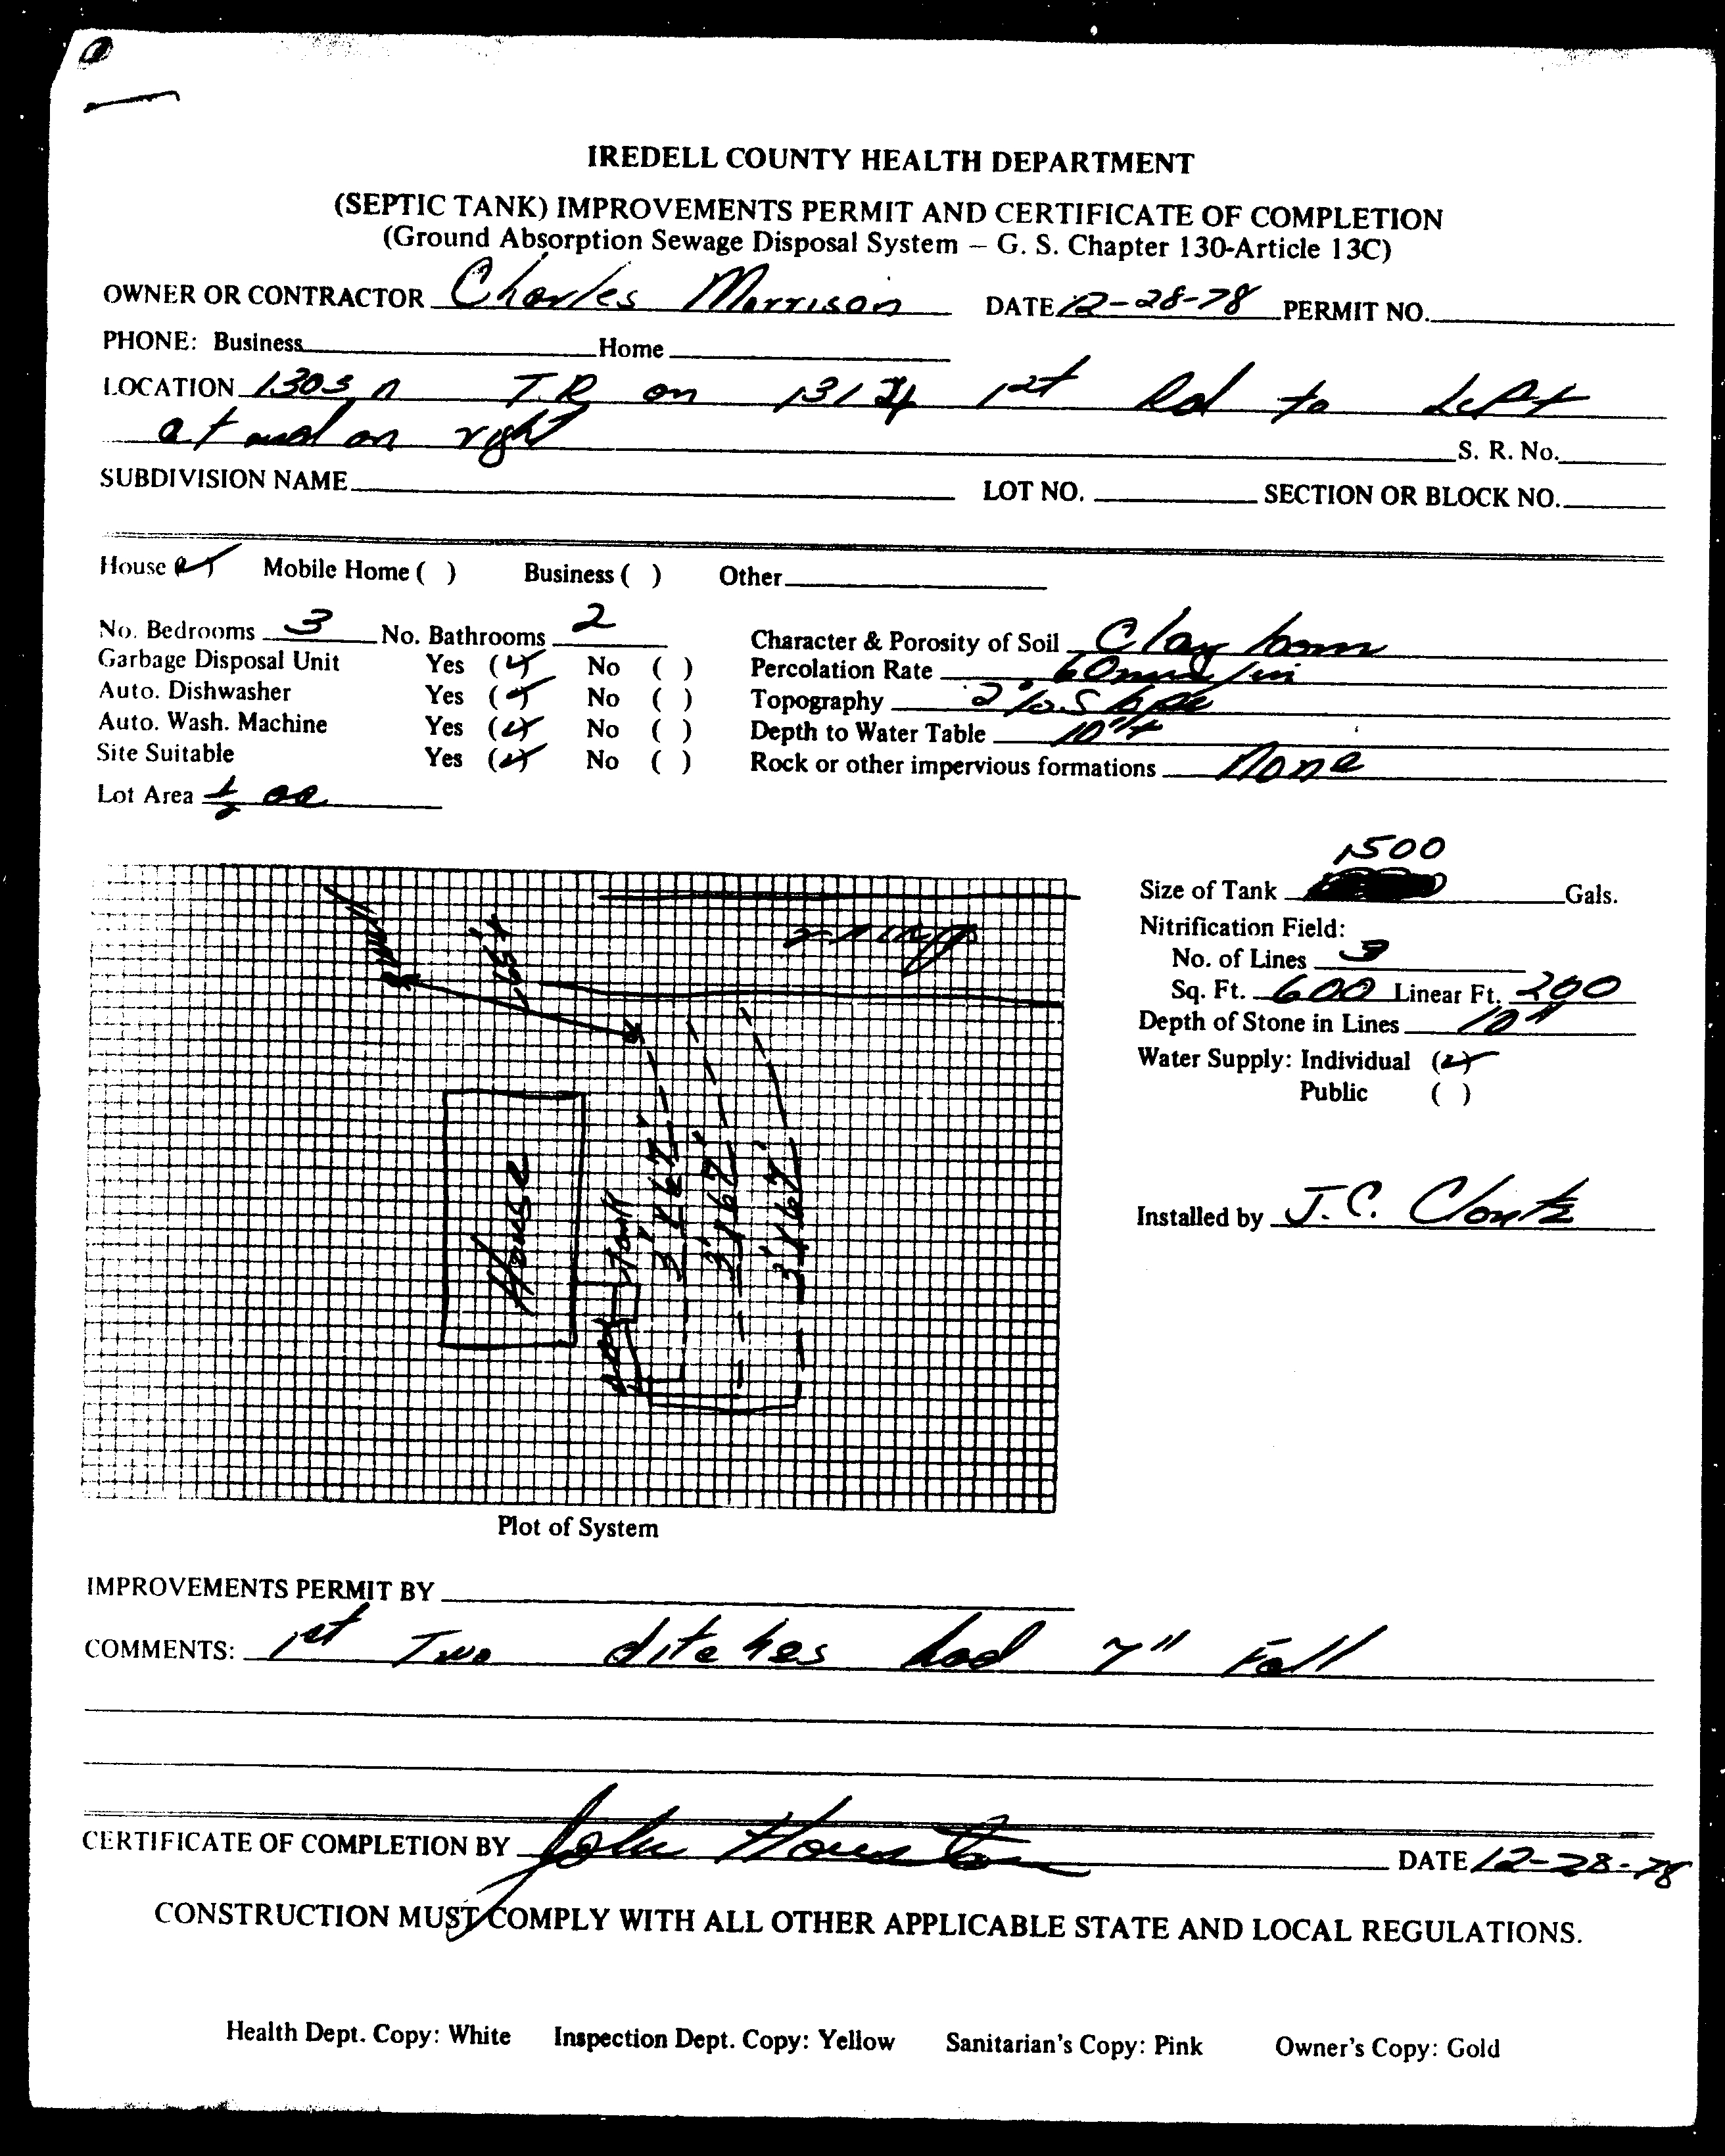 IREDELL COUNTY HEALTH DEPARTMENT
(SEPTIC TANK) IMPROVEMENTS PERMIT AND CERTIFICATE OF COMPLETION
(Ground Absorption Sewage Disposal System – G. S. Chapter 130-Article 13C)
OWNER OR CONTRACTOR Charles Morrison DATE 12-28-78 PERMIT NO.
PHONE: Business Home
LOCATION 1303 n T.R. on 1st Rd to Left
at end on right S. R. No.
SUBDIVISION NAME LOT NO. SECTION OR BLOCK NO.
House ( ) Mobile Home ( ) Business ( ) Other
No. Bedrooms 3 No. Bathrooms 2 Character & Porosity of Soil Clay loam
Garbage Disposal Unit Yes (✓) No ( ) Percolation Rate 60 min/in
Auto. Dishwasher Yes (✓) No ( ) Topography 2% Slope
Auto. Wash. Machine Yes (✓) No ( ) Depth to Water Table 10 ft
Site Suitable Yes (✓) No ( ) Rock or other impervious formations None
Lot Area 1/2 ac
1500
Size of Tank Gals.
Nitrification Field:
No. of Lines 3
Sq. Ft. 600 Linear Ft. 200
Depth of Stone in Lines 10"
Water Supply: Individual (✓)
Public ( )
Installed by J.C. Clontz
Well
65 ft
House
Tank
3'x67'
3'x67'
3'x67'
Plot of System
IMPROVEMENTS PERMIT BY
COMMENTS: 1st Two ditches had 7" Fall
CERTIFICATE OF COMPLETION BY John Houston DATE 12-28-78
CONSTRUCTION MUST COMPLY WITH ALL OTHER APPLICABLE STATE AND LOCAL REGULATIONS.
Health Dept. Copy: White Inspection Dept. Copy: Yellow Sanitarian's Copy: Pink Owner's Copy: Gold